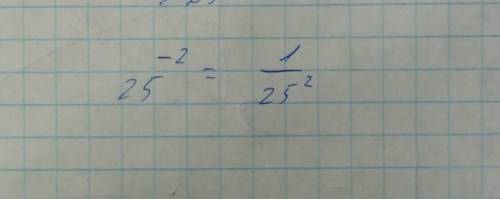 25⁻² = 1/25²